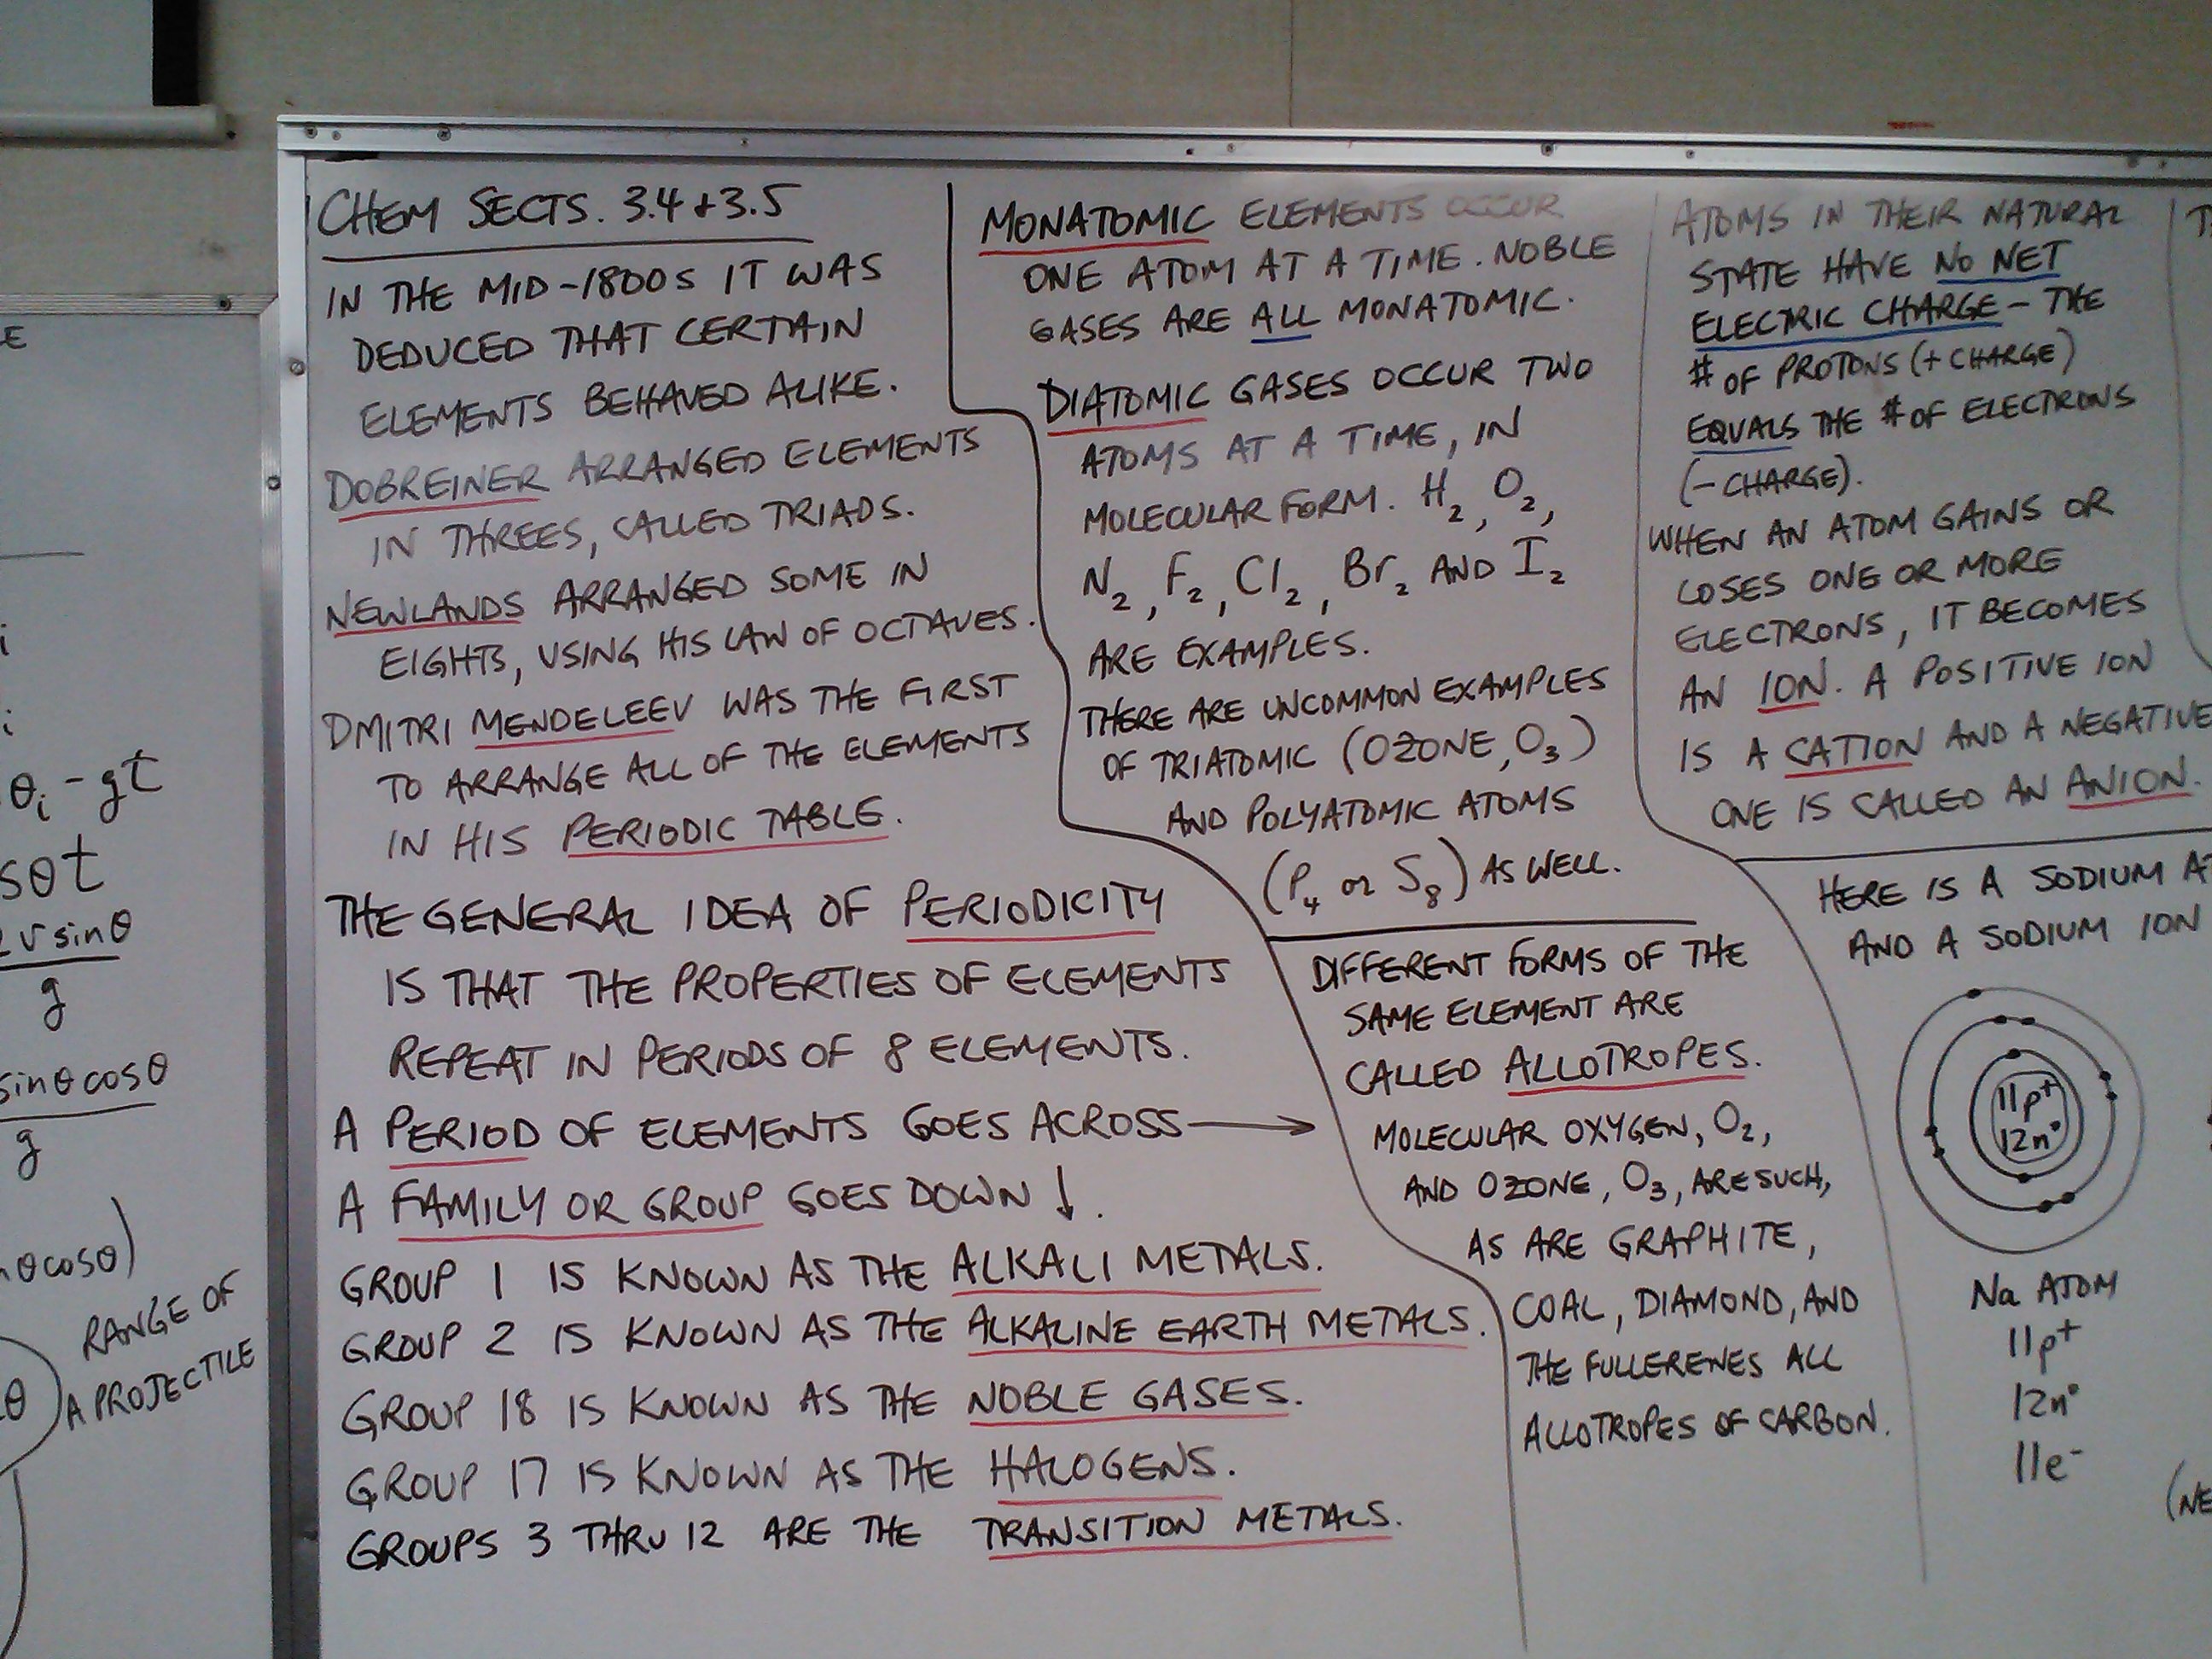 E
i
i
θi - gt
sθt
2 v sinθ
g
sinθ cosθ
g
θ cosθ)
RANGE OF
A PROJECTILE
θ
CHEM SECTS. 3.4 + 3.5
IN THE MID-1800s IT WAS
DEDUCED THAT CERTAIN
ELEMENTS BEHAVED ALIKE.
DOBREINER ARRANGED ELEMENTS
IN THREES, CALLED TRIADS.
NEWLANDS ARRANGED SOME IN
EIGHTS, USING HIS LAW OF OCTAVES.
DMITRI MENDELEEV WAS THE FIRST
TO ARRANGE ALL OF THE ELEMENTS
IN HIS PERIODIC TABLE.
THE GENERAL IDEA OF PERIODICITY
IS THAT THE PROPERTIES OF ELEMENTS
REPEAT IN PERIODS OF 8 ELEMENTS.
A PERIOD OF ELEMENTS GOES ACROSS →
A FAMILY OR GROUP GOES DOWN ↓.
GROUP 1 IS KNOWN AS THE ALKALI METALS.
GROUP 2 IS KNOWN AS THE ALKALINE EARTH METALS.
GROUP 18 IS KNOWN AS THE NOBLE GASES.
GROUP 17 IS KNOWN AS THE HALOGENS.
GROUPS 3 THRU 12 ARE THE TRANSITION METALS.
MONATOMIC ELEMENTS OCCUR
ONE ATOM AT A TIME. NOBLE
GASES ARE ALL MONATOMIC.
DIATOMIC GASES OCCUR TWO
ATOMS AT A TIME, IN
MOLECULAR FORM. H₂, O₂,
N₂, F₂, Cl₂, Br₂ AND I₂
ARE EXAMPLES.
THERE ARE UNCOMMON EXAMPLES
OF TRIATOMIC (OZONE, O₃)
AND POLYATOMIC ATOMS
(P₄ or S₈) AS WELL.
DIFFERENT FORMS OF THE
SAME ELEMENT ARE
CALLED ALLOTROPES.
MOLECULAR OXYGEN, O₂,
AND OZONE, O₃, ARE SUCH,
AS ARE GRAPHITE,
COAL, DIAMOND, AND
THE FULLERENES ALL
ALLOTROPES OF CARBON.
ATOMS IN THEIR NATURAL
STATE HAVE NO NET
ELECTRIC CHARGE - THE
# OF PROTONS (+ CHARGE)
EQUALS THE # OF ELECTRONS
(- CHARGE).
WHEN AN ATOM GAINS OR
LOSES ONE OR MORE
ELECTRONS, IT BECOMES
AN ION. A POSITIVE ION
IS A CATION AND A NEGATIVE
ONE IS CALLED AN ANION.
HERE IS A SODIUM AT
AND A SODIUM ION
11p⁺
12n°
Na ATOM
11p⁺
12n°
11e⁻
(NE